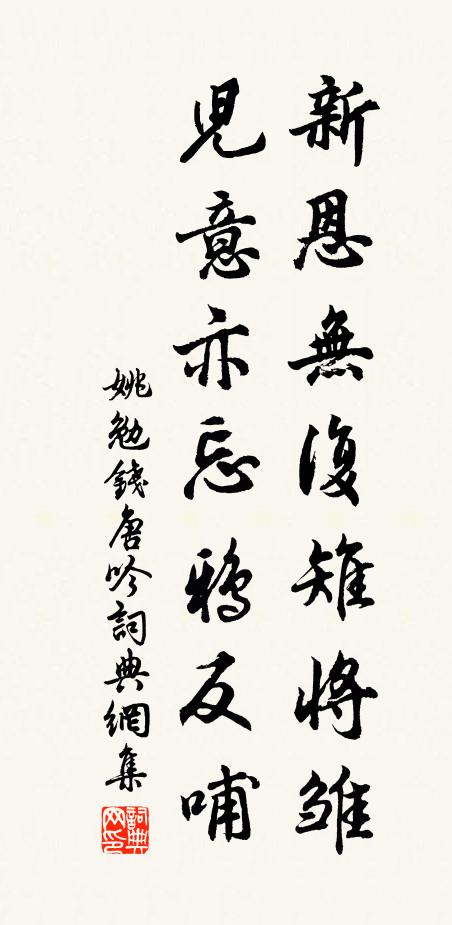 新恩無復雉將雛
兒意亦忘鴉反哺
姚勉錢唐吟詞典網集
詞典網印